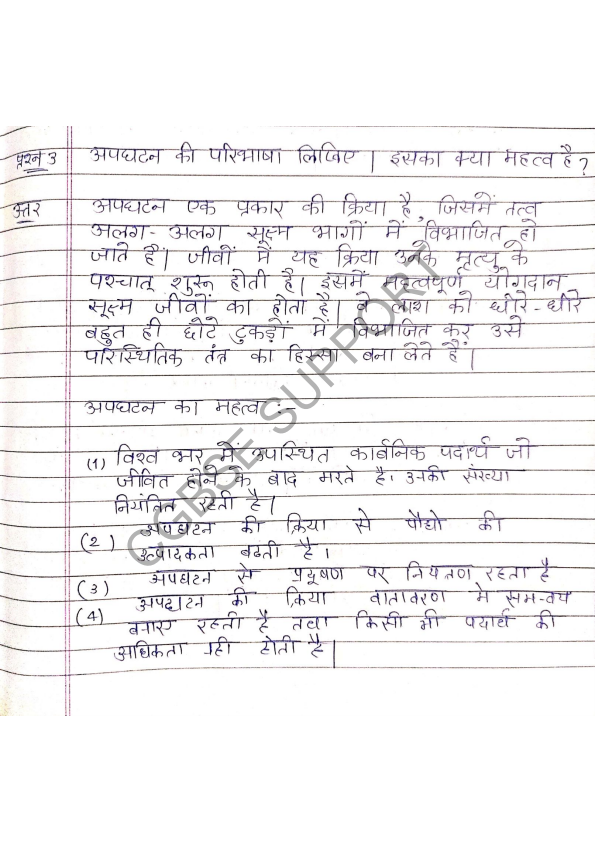 प्रश्न 3 अपघटन की परिभाषा लिखिए | इसका क्या महत्व है ?
उत्तर अपघटन एक प्रकार की क्रिया है, जिसमें तत्व
अलग-अलग सूक्ष्म भागों में विभाजित हो
जाते हैं | जीवों में यह क्रिया उनके मृत्यु के
पश्चात् शुरू होती है | इसमें महत्वपूर्ण योगदान
सूक्ष्म जीवों का होता है | वे लाश को धीरे-धीरे
बहुत ही छोटे टुकड़ों में विभाजित कर उसे
पारिस्थितिक तंत्र का हिस्सा बना लेते हैं |
अपघटन का महत्व :-
(1) विश्व भर में उपस्थित कार्बनिक पदार्थ जो
जीवित होने के बाद मरते है। उनकी संख्या
नियंत्रित रहती है |
(2) अपघटन की क्रिया से पौधो की
उत्पादकता बढती है ।
(3) अपघटन से प्रदूषण पर नियंतण रहता है
(4) अपघटन की क्रिया वातावरण मे समन्वय
बनाए रहती है तथा किसी भी पदार्थ की
अधिकता नही होती है |
CGBSE SUPPORT